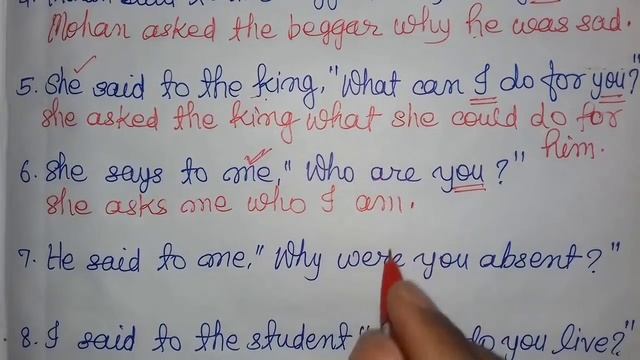 Mohan asked the beggar why he was sad.
5. She said to the king, "What can I do for you?"
she asked the king what she could do for
him.
6. she says to me, "Who are you?"
she asks me who I am.
7. He said to me, "Why were you absent?"
8. I said to the student " do you live?"